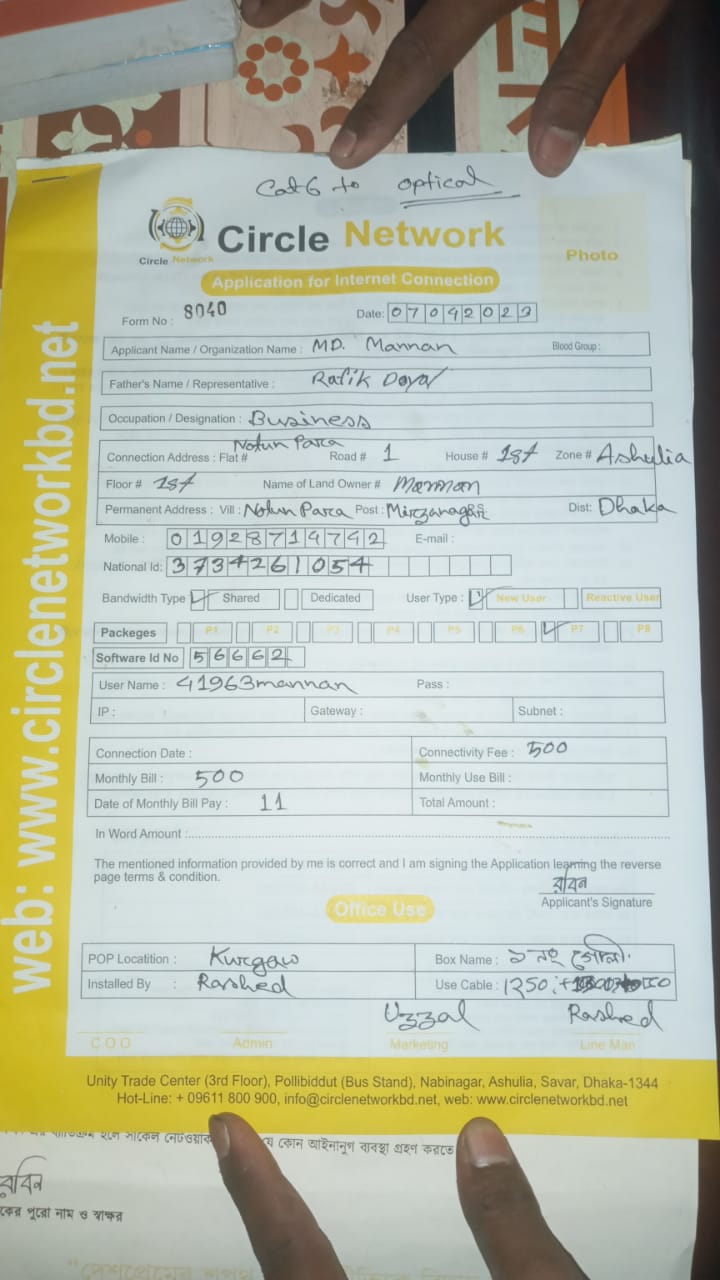 Cat6 to optical
Circle Network
Circle Network
Photo
Application for Internet Connection
Form No : 8040 Date: 07042023
Applicant Name / Organization Name : MD. Mannan Blood Group :
Father's Name / Representative : Rafik
Occupation / Designation : Business
Connection Address : Flat # Notun Para Road # 1 House # 1st Zone # Ashulia
Floor # 1st Name of Land Owner # Mannan
Permanent Address : Vill : Notun Para Post : Mirzanagar Dist: Dhaka
Mobile : 01928714742 E-mail :
National Id: 3734261054
Bandwidth Type Shared Dedicated User Type : New User Reactive User
Packeges P1 P2 P3 P4 P5 P6 P7 P8
Software Id No 56662
User Name : 41963mannan Pass :
IP : Gateway : Subnet :
Connection Date : Connectivity Fee : 500
Monthly Bill : 500 Monthly Use Bill :
Date of Monthly Bill Pay : 11 Total Amount :
In Word Amount :
The mentioned information provided by me is correct and I am signing the Application learning the reverse
page terms & condition.
রবিন
Applicant's Signature
Office Use
POP Locatition : Kurgaw Box Name : ১ নং গোলী
Installed By : Rashed Use Cable : 1250
Uzzal Rashed
C O O Admin Marketing Line Man
Unity Trade Center (3rd Floor), Pollibiddut (Bus Stand), Nabinagar, Ashulia, Savar, Dhaka-1344
Hot-Line: + 09611 800 900, info@circlenetworkbd.net, web: www.circlenetworkbd.net
web: www.circlenetworkbd.net
হলে সার্কেল নেটওয়ার্ক যে কোন আইনানুগ ব্যবস্থা গ্রহণ করতে
রবিন
কের পুরো নাম ও স্বাক্ষর